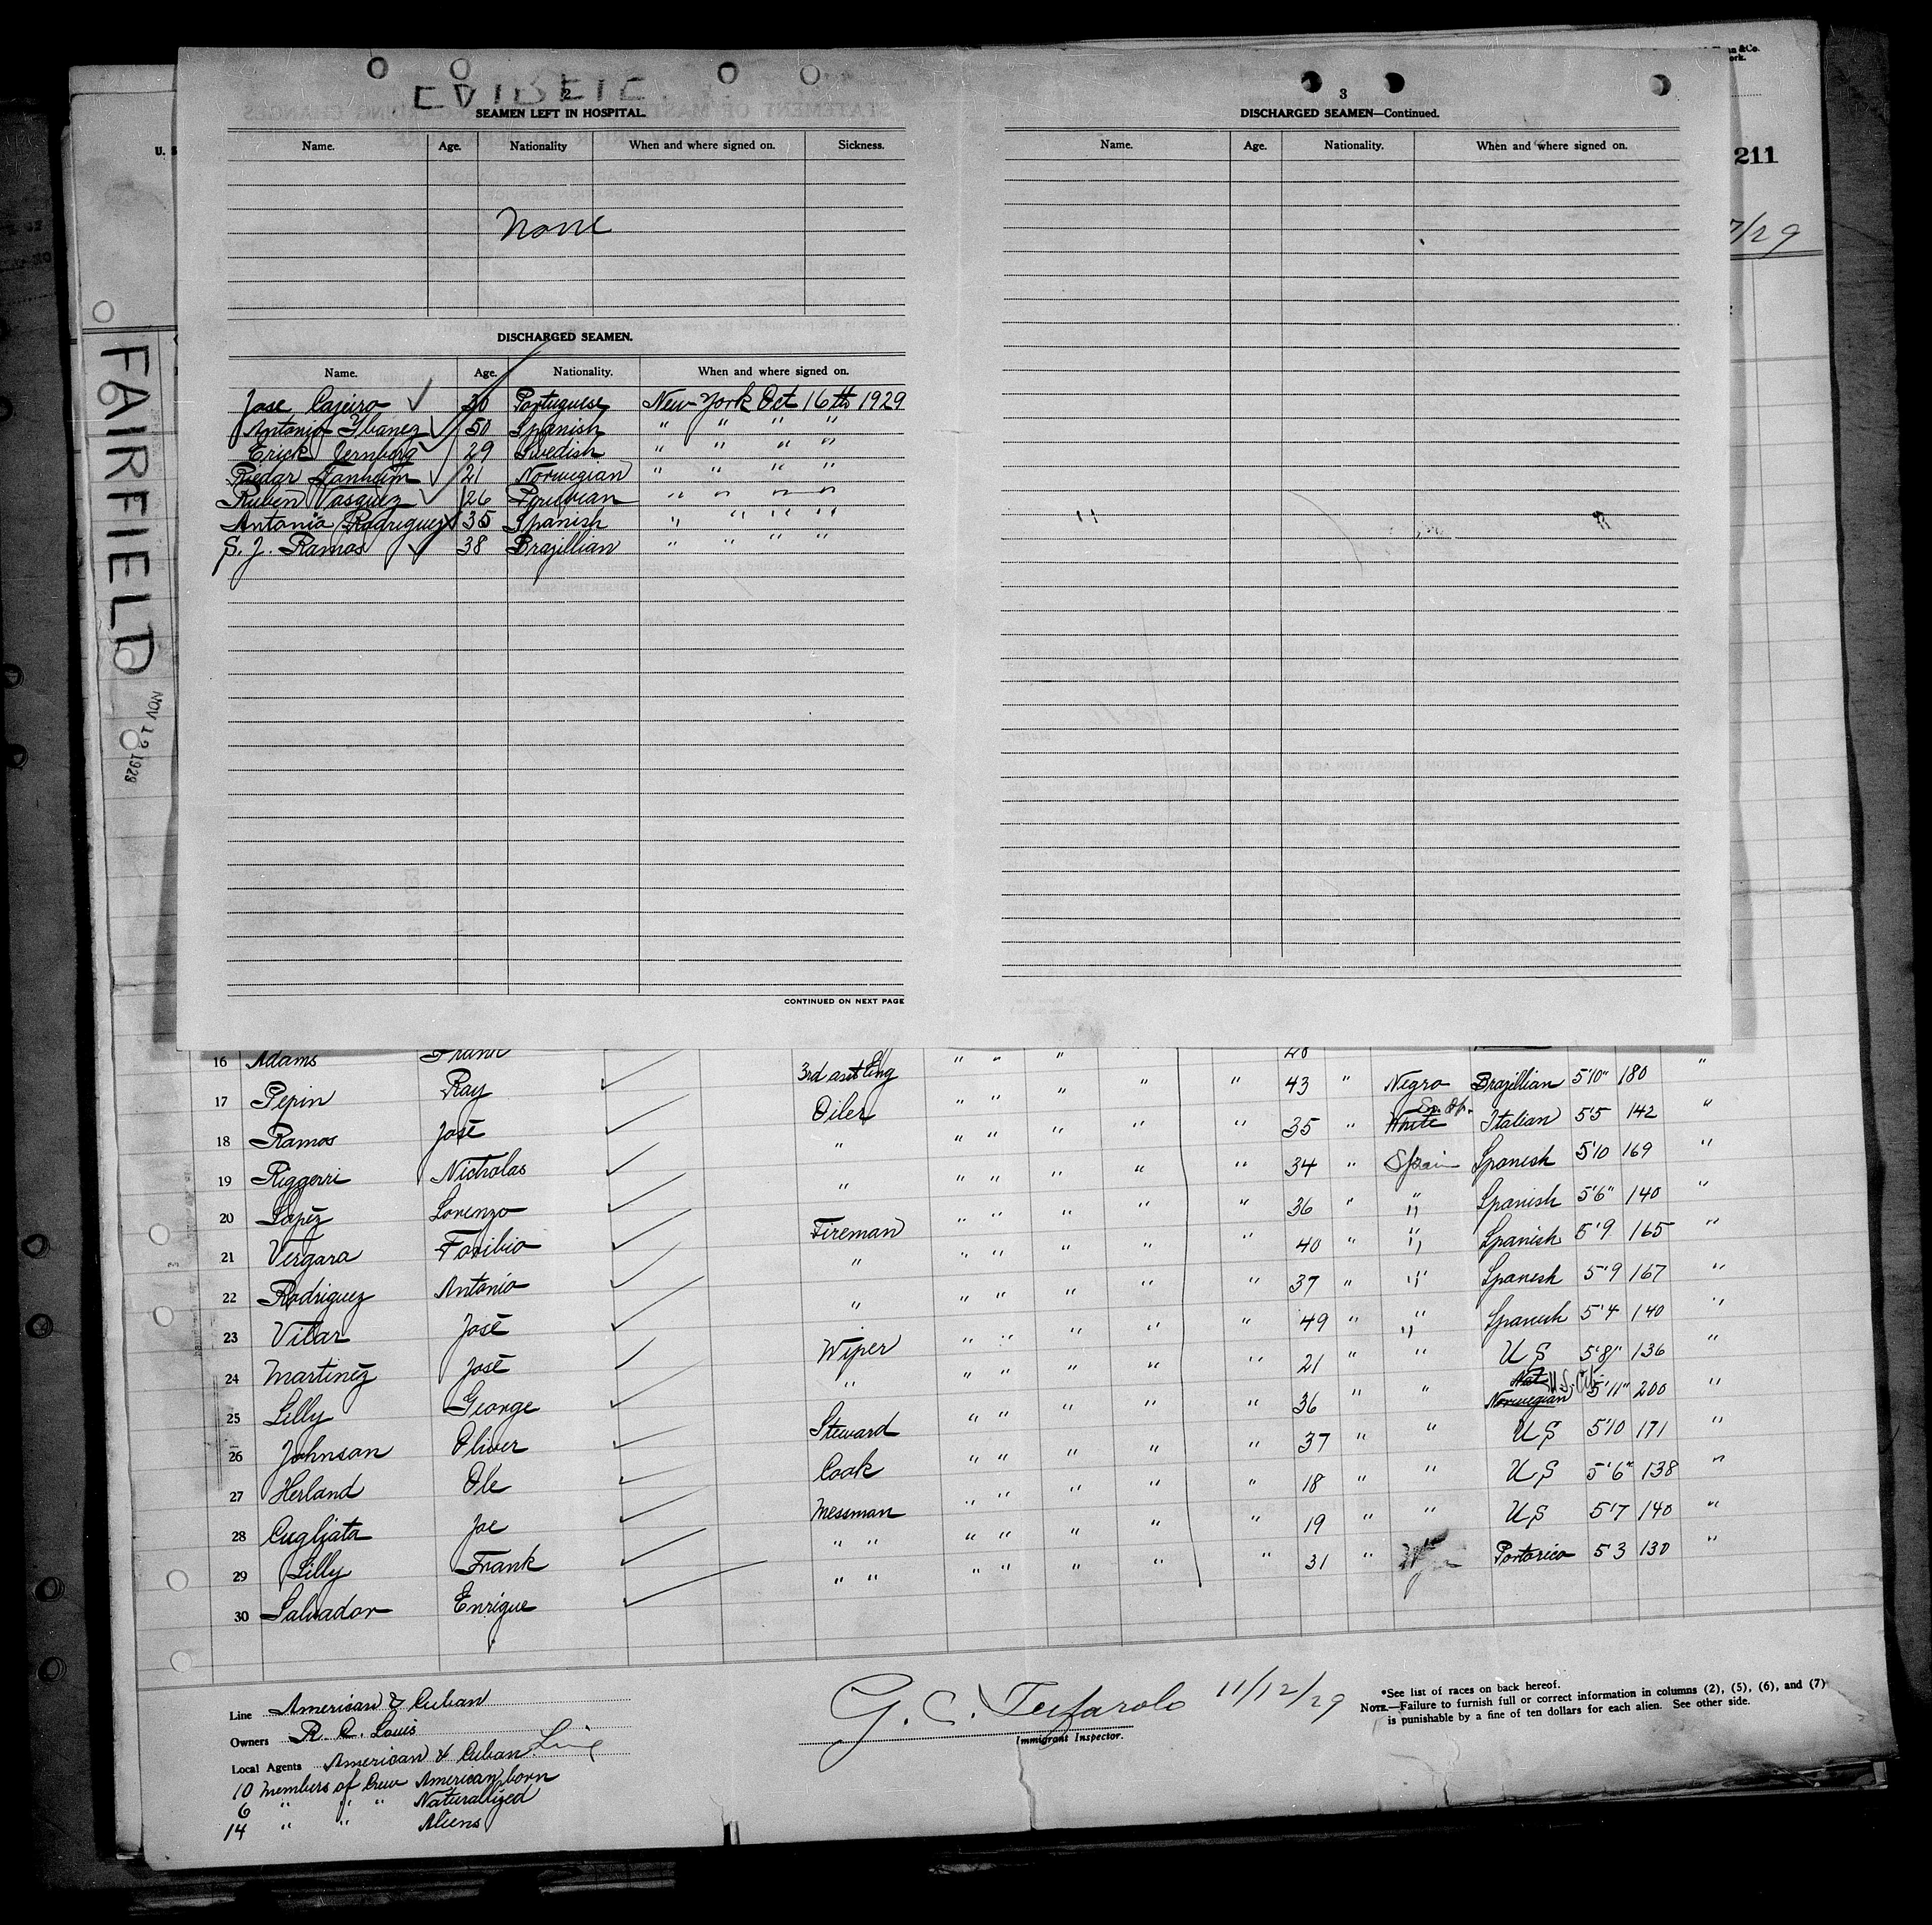 2
SEAMEN LEFT IN HOSPITAL.
Name. Age. Nationality When and where signed on. Sickness.
None
DISCHARGED SEAMEN.
Name. Age. Nationality. When and where signed on.
Jose Cajeiro ✓ 30 Portuguese New York Oct 16th 1929
Antonio Ybanez ✓ 50 Spanish " " " "
Erick Jernberg ✓ 29 Swedish " " " "
Riedar Tanheim ✓ 21 Norwegian " " " "
Ruben Vasquez ✓ 26 Peruvian " " " "
Antonio Rodriguez 35 Spanish " " " "
S. J. Ramos ✓ 38 Brazillian " " " "
CONTINUED ON NEXT PAGE
3
DISCHARGED SEAMEN—Continued.
Name. Age. Nationality. When and where signed on.
211
7/29
U. S
FAIRFIELD
NOV 12 1929
16 Adams Frank
17 Pepin Ray ✓ 3rd asst Eng " " " 40 "
18 Ramos José ✓ Oiler " " " " " 43 " Negro Brazillian 5'10" 180 "
19 Riggerri Nicholas ✓ " " " " " " 35 " White Italian 5'5 142 "
20 Lopez Lorenzo ✓ " " " " " " 34 " Spain Spanish 5'10 169 "
21 Vergara Toribio ✓ Fireman " " " " " 36 " " Spanish 5'6" 140 "
22 Rodriguez Antonio ✓ " " " " " " 40 " " Spanish 5'9 165 "
23 Vilar José ✓ " " " " " " 37 " " Spanish 5'9 167 "
24 Martinez José ✓ Wiper " " " " " 49 " " Spanish 5'4 140 "
25 Lilly George ✓ " " " " " " 21 " " U S 5'8" 136 "
26 Johnson Oliver ✓ Steward " " " " " 36 " " Nat Norwegian U.S. Cit. 5'11" 200 "
27 Herland Ole ✓ Cook " " " " " 37 " " U S 5'10 171 "
28 Cugliata Joe ✓ Messman " " " " " 18 " " U S 5'6" 138 "
29 Lilly Frank ✓ " " " " " " " 19 " " U S 5'7 140 "
30 Salvador Enrique ✓ " " " " " " " 31 " Portorico 5 3 130 "
Line American & Cuban
Owners R. A. Louis
Local Agents American & Cuban Line
10 members of Crew American born
6 " " " Naturalized
14 " " Aliens
G. C. 11/12/29
Immigrant Inspector.
*See list of races on back hereof.
NOTE.—Failure to furnish full or correct information in columns (2), (5), (6), and (7)
is punishable by a fine of ten dollars for each alien. See other side.